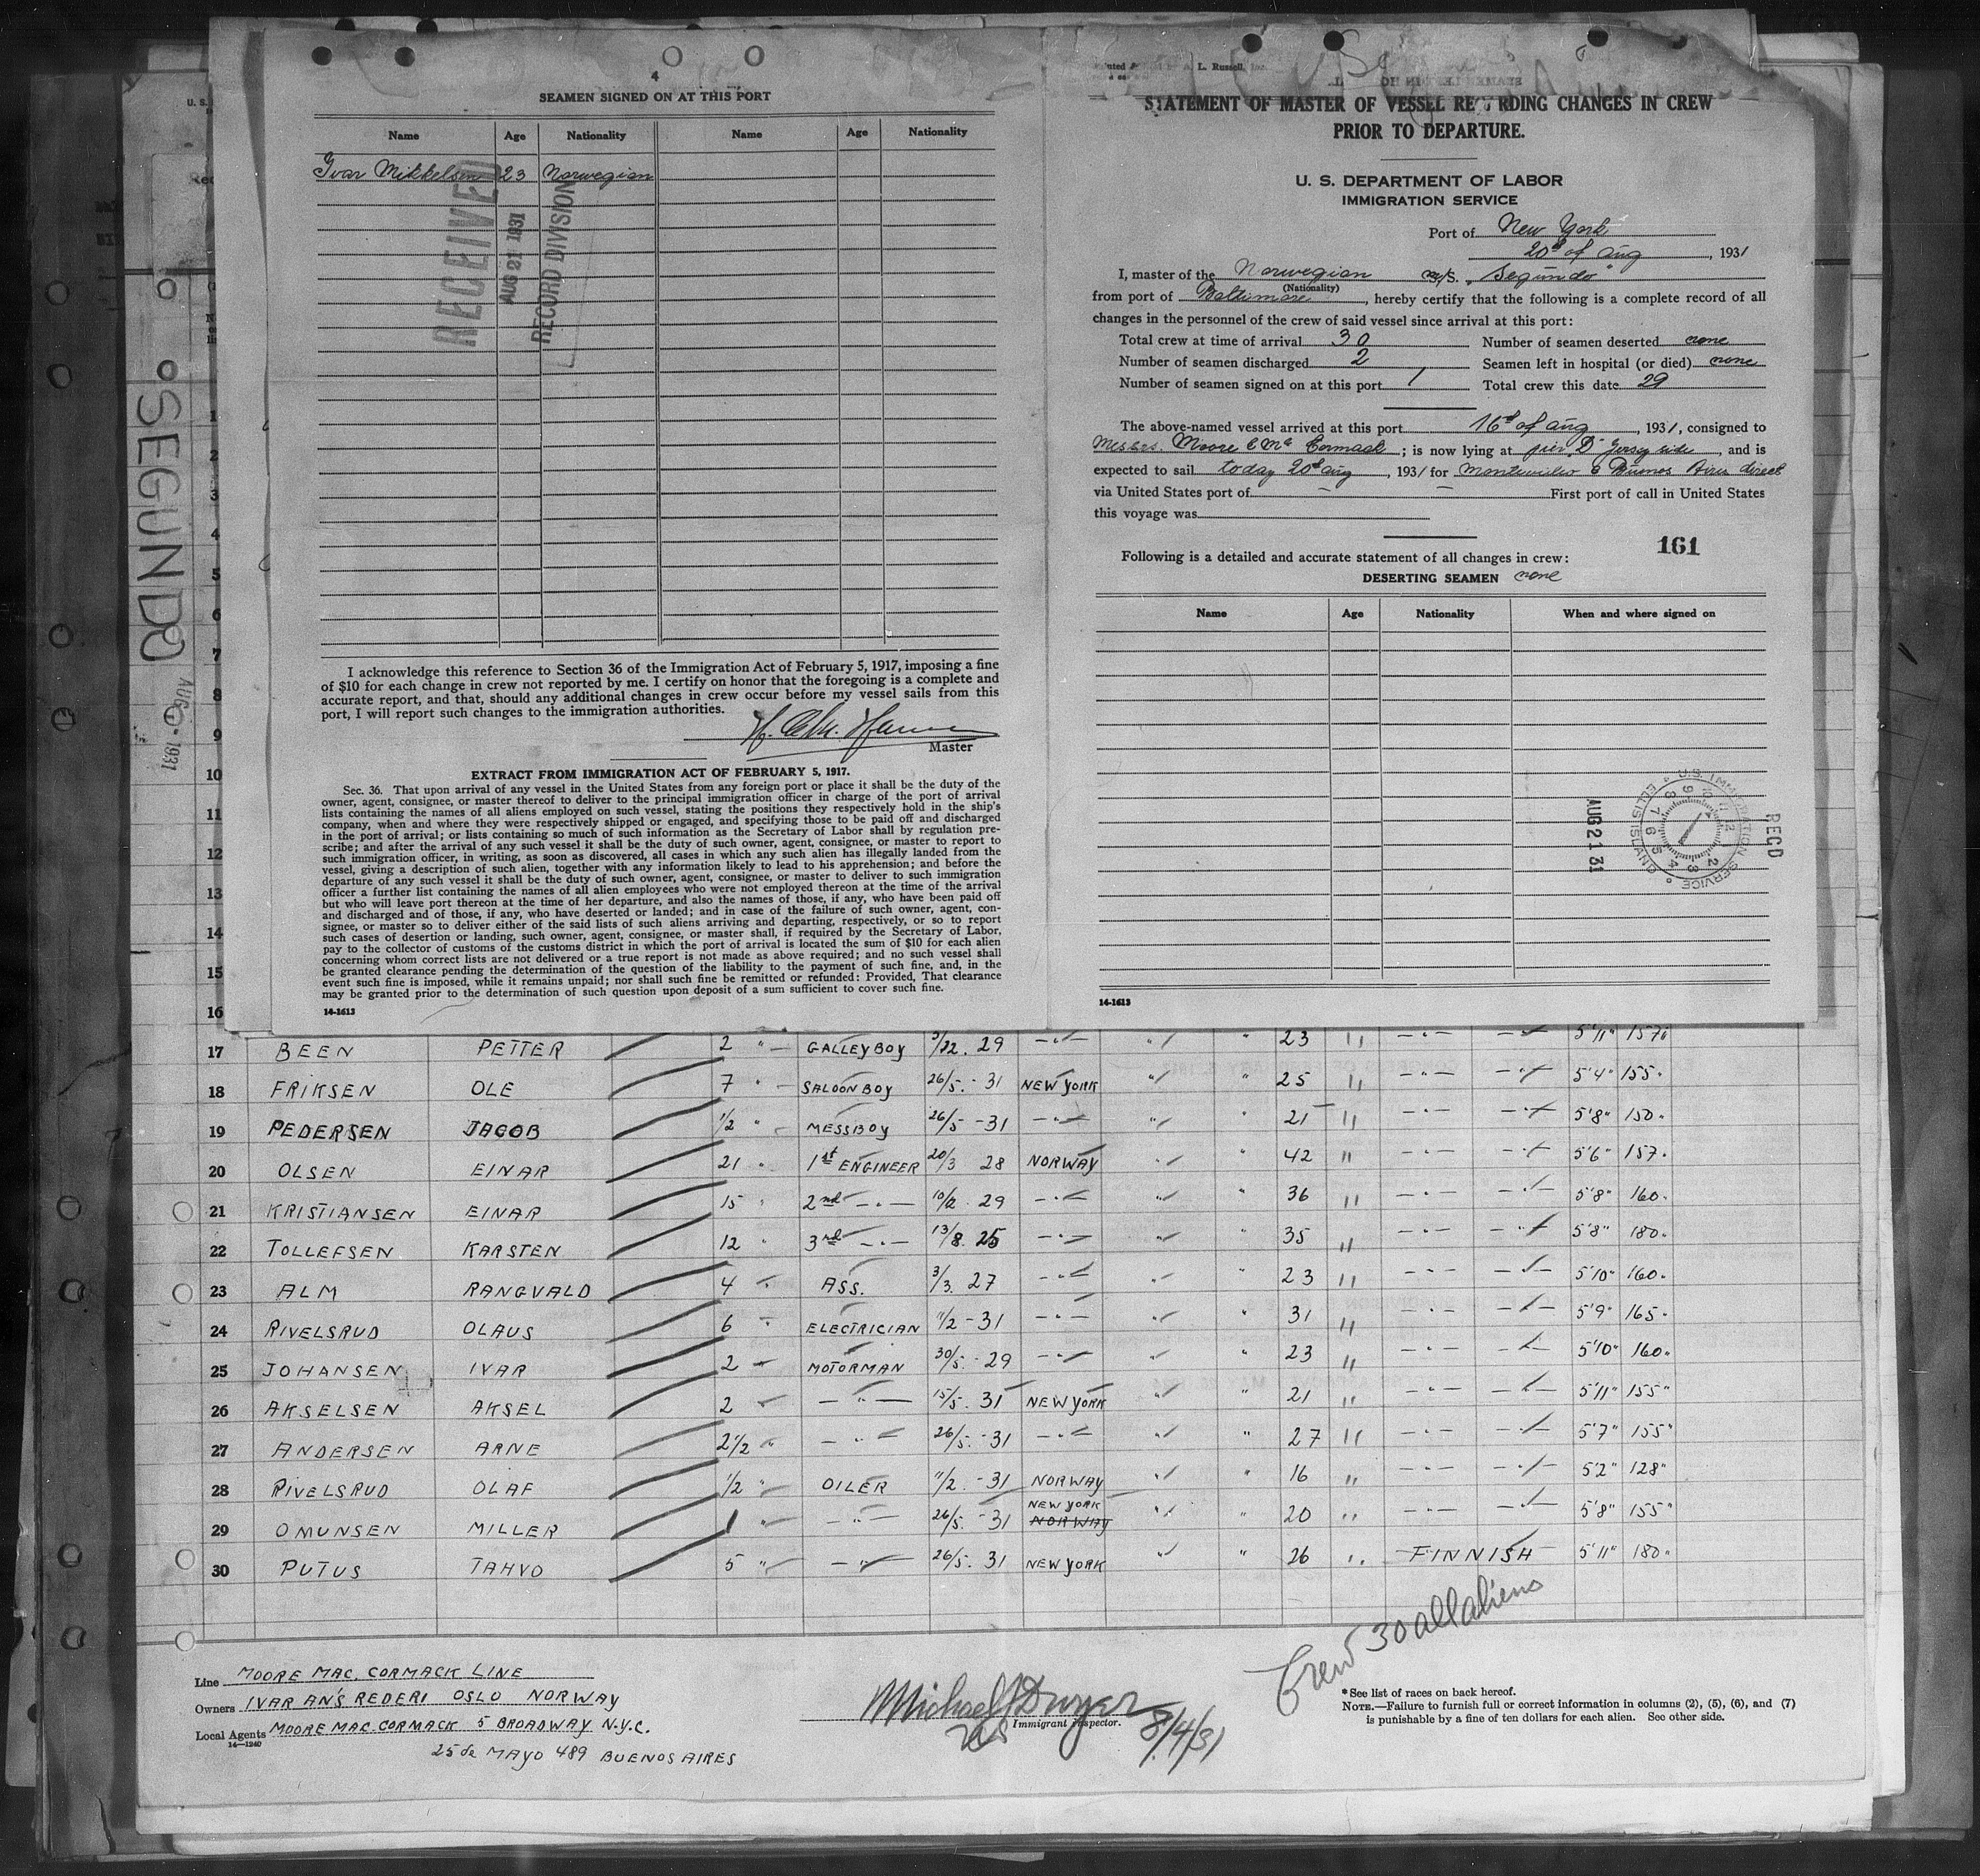 4
SEAMEN SIGNED ON AT THIS PORT
Name Age Nationality Name Age Nationality
Ivar Mikkelsen 23 Norwegian
RECEIVED
AUG 21 1931
RECORD DIVISION
I acknowledge this reference to Section 36 of the Immigration Act of February 5, 1917, imposing a fine
of $10 for each change in crew not reported by me. I certify on honor that the foregoing is a complete and
accurate report, and that, should any additional changes in crew occur before my vessel sails from this
port, I will report such changes to the immigration authorities.
Master
EXTRACT FROM IMMIGRATION ACT OF FEBRUARY 5, 1917.
Sec. 36. That upon arrival of any vessel in the United States from any foreign port or place it shall be the duty of the
owner, agent, consignee, or master thereof to deliver to the principal immigration officer in charge of the port of arrival
lists containing the names of all aliens employed on such vessel, stating the positions they respectively hold in the ship's
company, when and where they were respectively shipped or engaged, and specifying those to be paid off and discharged
in the port of arrival; or lists containing so much of such information as the Secretary of Labor shall by regulation pre-
scribe; and after the arrival of any such vessel it shall be the duty of such owner, agent, consignee, or master to report to
such immigration officer, in writing, as soon as discovered, all cases in which any such alien has illegally landed from the
vessel, giving a description of such alien, together with any information likely to lead to his apprehension; and before the
departure of any such vessel it shall be the duty of such owner, agent, consignee, or master to deliver to such immigration
officer a further list containing the names of all alien employees who were not employed thereon at the time of the arrival
but who will leave port thereon at the time of her departure, and also the names of those, if any, who have been paid off
and discharged and of those, if any, who have deserted or landed; and in case of the failure of such owner, agent, con-
signee, or master so to deliver either of the said lists of such aliens arriving and departing, respectively, or so to report
such cases of desertion or landing, such owner, agent, consignee, or master shall, if required by the Secretary of Labor,
pay to the collector of customs of the customs district in which the port of arrival is located the sum of $10 for each alien
concerning whom correct lists are not delivered or a true report is not made as above required; and no such vessel shall
be granted clearance pending the determination of the question of the liability to the payment of such fine, and, in the
event such fine is imposed, while it remains unpaid; nor shall such fine be remitted or refunded: Provided, That clearance
may be granted prior to the determination of such question upon deposit of a sum sufficient to cover such fine.
14-1613
L. Russell, Inc.
STATEMENT OF MASTER OF VESSEL REGARDING CHANGES IN CREW
PRIOR TO DEPARTURE.
U. S. DEPARTMENT OF LABOR
IMMIGRATION SERVICE
Port of New York
20d of aug, 1931
I, master of the Norwegian m/s. "Segundo"
(Nationality)
from port of Baltimore, hereby certify that the following is a complete record of all
changes in the personnel of the crew of said vessel since arrival at this port:
Total crew at time of arrival 30 Number of seamen deserted none
Number of seamen discharged 2 Seamen left in hospital (or died) none
Number of seamen signed on at this port 1 Total crew this date 29
The above-named vessel arrived at this port 16d of aug, 1931, consigned to
Messrs. Moore & Mc Cormack; is now lying at pier D Jersey side, and is
expected to sail today 20d aug, 1931 for Montevideo & Buenos Aires direct
via United States port of First port of call in United States
this voyage was
161
Following is a detailed and accurate statement of all changes in crew:
DESERTING SEAMEN none
Name Age Nationality When and where signed on
U.S. IMMIGRATION SERVICE ELLIS ISLAND
AUG 21 31
REC'D
14-1613
SEGUNDO
AUG 1931
1
2
3
4
5
6
7
8
9
10
11
12
13
14
15
16
17 BEEN PETTER 2 " GALLEY BOY 3/22. 29 -"- " " 23 " -"- -"- 5'11" 157"
18 FRIKSEN OLE 7 " SALOON BOY 26/5. - 31 NEW YORK " " 25 " -"- -"- 5'4" 155"
19 PEDERSEN JACOB 1/2 " MESSBOY 26/5 - 31 -"- " " 21 " -"- -"- 5'8" 150"
20 OLSEN EINAR 21 " 1st ENGINEER 20/3 28 NORWAY " " 42 " -"- -"- 5'6" 157"
21 KRISTIANSEN EINAR 15 " 2nd -"- 10/2. 29 -"- " " 36 " -"- -"- 5'8" 160"
22 TOLLEFSEN KARSTEN 12 " 3rd -"- 13/8. 25 -"- " " 35 " -"- -"- 5'8" 180"
23 ALM RANGVALD 4 " ASS. 3/3. 27 -"- " " 23 " -"- -"- 5'10" 160"
24 RIVELSRUD OLAUS 6 " ELECTRICIAN 11/2 - 31 -"- " " 31 " -"- -"- 5'9" 165"
25 JOHANSEN IVAR 2 " MOTORMAN 30/5. - 29 -"- " " 23 " -"- -"- 5'10" 160"
26 AKSELSEN AKSEL 2 " -"- 15/5. 31 NEW YORK " " 21 " -"- -"- 5'11" 155"
27 ANDERSEN ARNE 2 1/2 " -"- 26/5. - 31 -"- " " 27 " -"- -"- 5'7" 155"
28 RIVELSRUD OLAF 1/2 " OILER 11/2. - 31 NORWAY " " 16 " -"- -"- 5'2" 128"
NEW YORK
29 OMUNSEN MILLER 1 " -"- 26/5. - 31 NORWAY " " 20 " -"- -"- 5'8" 155"
30 PUTUS TAHVO 5 " -"- 26/5. 31 NEW YORK " " 26 " FINNISH 5'11" 180"
Crew 30 all aliens
Line MOORE MAC. CORMACK LINE
Owners IVAR AN'S REDERI OSLO NORWAY
Local Agents MOORE MAC. CORMACK 5 BROADWAY N.Y.C.
14-1240
25 de MAYO 489 BUENOS AIRES
Michael J Dwyer
Immigrant Inspector.
8/4/31
*See list of races on back hereof.
NOTE.—Failure to furnish full or correct information in columns (2), (5), (6), and (7)
is punishable by a fine of ten dollars for each alien. See other side.